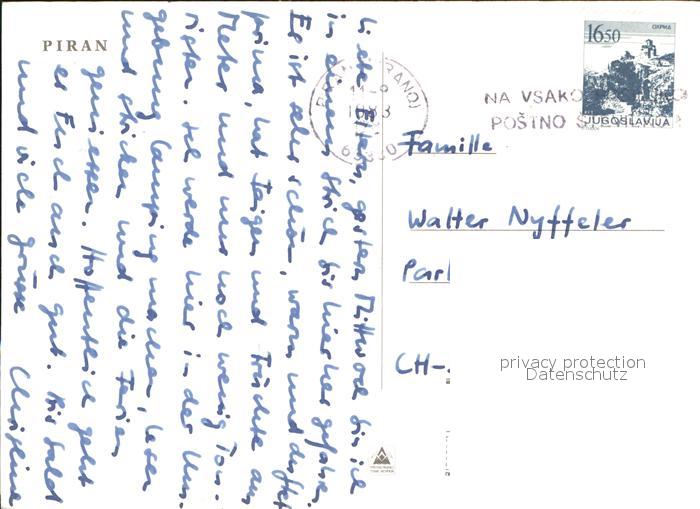 PIRAN
Liebe Eltern, gestern Mittwoch bin ich
in einem Strich bis hierher gefahren.
Es ist sehr schön, warm und duftet
prima, hat Feigen und Früchte am
Meter und nur noch wenig Tou-
risten. Ich werde hier in der Um-
gebung Camping machen, lesen
und stricken und die Ferien
geniessen. Hoffentlich geht
es Euch auch gut. Bis bald
und viele Grüsse Christine
1650
ОХРИД
JUGOSLAVIJA
PIRAN
1983
NA VSAKO
POŠTNO
Famille
Walter Nyffeler
Parl
CH-
privacy protection
Datenschutz